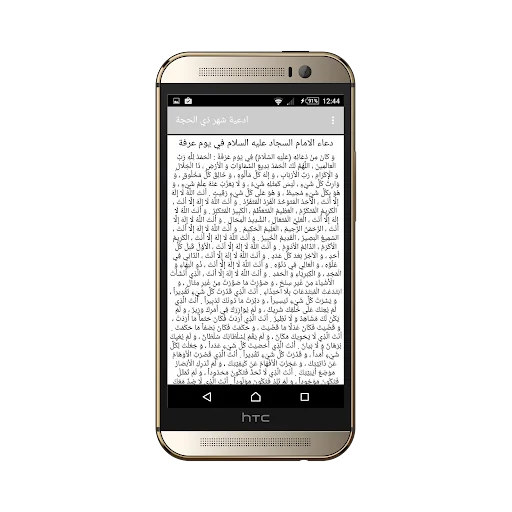 91% 12:44
ادعية شهر ذي الحجة
دعاء الامام السجاد عليه السلام في يوم عرفة
و كَانَ مِنْ دُعَائِهِ (عَلَيْهِ السَّلَامُ) فِي يَوْمِ عَرَفَةَ : الْحَمْدُ لِلَّهِ رَبِّ
الْعَالَمِينَ . اللَّهُمَّ لَكَ الْحَمْدُ بَدِيعَ السَّمَاوَاتِ وَ الْأَرْضِ ، ذَا الْجَلَالِ
وَ الْإِكْرَامِ ، رَبَّ الْأَرْبَابِ ، وَ إِلَهَ كُلِّ مَأْلُوهٍ ، وَ خَالِقَ كُلِّ مَخْلُوقٍ ، وَ
وَارِثَ كُلِّ شَيْءٍ ، لَيْسَ كَمِثْلِهِ شَيْءٌ ، وَ لَا يَعْزُبُ عَنْهُ عِلْمُ شَيْءٍ ، وَ
هُوَ بِكُلِّ شَيْءٍ مُحِيطٌ ، وَ هُوَ عَلَى كُلِّ شَيْءٍ رَقِيبٌ . أَنْتَ اللَّهُ لَا إِلَهَ
إِلَّا أَنْتَ ، الْأَحَدُ الْمُتَوَحِّدُ الْفَرْدُ الْمُتَفَرِّدُ . وَ أَنْتَ اللَّهُ لَا إِلَهَ إِلَّا أَنْتَ ،
الْكَرِيمُ الْمُتَكَرِّمُ ، الْعَظِيمُ الْمُتَعَظِّمُ ، الْكَبِيرُ الْمُتَكَبِّرُ . وَ أَنْتَ اللَّهُ
لَا إِلَهَ إِلَّا أَنْتَ ، الْعَلِيُّ الْمُتَعَالِ ، الشَّدِيدُ الْمِحَالِ . وَ أَنْتَ اللَّهُ لَا إِلَهَ إِلَّا
أَنْتَ ، الرَّحْمَنُ الرَّحِيمُ ، الْعَلِيمُ الْحَكِيمُ . وَ أَنْتَ اللَّهُ لَا إِلَهَ إِلَّا أَنْتَ ،
السَّمِيعُ الْبَصِيرُ ، الْقَدِيمُ الْخَبِيرُ . وَ أَنْتَ اللَّهُ لَا إِلَهَ إِلَّا أَنْتَ ، الْكَرِيمُ
الْأَكْرَمُ ، الدَّائِمُ الْأَدْوَمُ . وَ أَنْتَ اللَّهُ لَا إِلَهَ إِلَّا أَنْتَ ، الْأَوَّلُ قَبْلَ كُلِّ
أَحَدٍ ، وَ الْآخِرُ بَعْدَ كُلِّ عَدَدٍ . وَ أَنْتَ اللَّهُ لَا إِلَهَ إِلَّا أَنْتَ ، الدَّانِي فِي
عُلُوِّهِ ، وَ الْعَالِي فِي دُنُوِّهِ . وَ أَنْتَ اللَّهُ لَا إِلَهَ إِلَّا أَنْتَ ، ذُو الْبَهَاءِ وَ
الْمَجْدِ ، وَ الْكِبْرِيَاءِ وَ الْحَمْدِ . وَ أَنْتَ اللَّهُ لَا إِلَهَ إِلَّا أَنْتَ ، الَّذِي أَنْشَأْتَ
الْأَشْيَاءَ مِنْ غَيْرِ سِنْخٍ ، وَ صَوَّرْتَ مَا صَوَّرْتَ مِنْ غَيْرِ مِثَالٍ ، وَ
ابْتَدَعْتَ الْمُبْتَدَعَاتِ بِلَا احْتِذَاءٍ . أَنْتَ الَّذِي قَدَّرْتَ كُلَّ شَيْءٍ تَقْدِيراً ،
وَ يَسَّرْتَ كُلَّ شَيْءٍ تَيْسِيراً ، وَ دَبَّرْتَ مَا دُونَكَ تَدْبِيراً . أَنْتَ الَّذِي
لَمْ يُعِنْكَ عَلَى خَلْقِكَ شَرِيكٌ ، وَ لَمْ يُوَازِرْكَ فِي أَمْرِكَ وَزِيرٌ ، وَ لَمْ
يَكُنْ لَكَ مُشَاهِدٌ وَ لَا نَظِيرٌ . أَنْتَ الَّذِي أَرَدْتَ فَكَانَ حَتْماً مَا أَرَدْتَ ،
وَ قَضَيْتَ فَكَانَ عَدْلًا مَا قَضَيْتَ ، وَ حَكَمْتَ فَكَانَ نِصْفاً مَا حَكَمْتَ .
أَنْتَ الَّذِي لَا يَحْوِيكَ مَكَانٌ ، وَ لَمْ يَقُمْ لِسُلْطَانِكَ سُلْطَانٌ ، وَ لَمْ يُعْيِكَ
بُرْهَانٌ وَ لَا بَيَانٌ . أَنْتَ الَّذِي أَحْصَيْتَ كُلَّ شَيْءٍ عَدَداً ، وَ جَعَلْتَ لِكُلِّ
شَيْءٍ أَمَداً ، وَ قَدَّرْتَ كُلَّ شَيْءٍ تَقْدِيراً . أَنْتَ الَّذِي قَصُرَتِ الْأَوْهَامُ
عَنْ ذَاتِيَّتِكَ ، وَ عَجَزَتِ الْأَفْهَامُ عَنْ كَيْفِيَّتِكَ ، وَ لَمْ تُدْرِكِ الْأَبْصَارُ
مَوْضِعَ أَيْنِيَّتِكَ . أَنْتَ الَّذِي لَا تُحَدُّ فَتَكُونَ مَحْدُوداً ، وَ لَمْ تُمَثَّلْ
فَتَكُونَ مَوْجُوداً ، وَ لَمْ تَلِدْ فَتَكُونَ مَوْلُوداً . أَنْتَ الَّذِي لَا ضِدَّ مَعَكَ
hTC